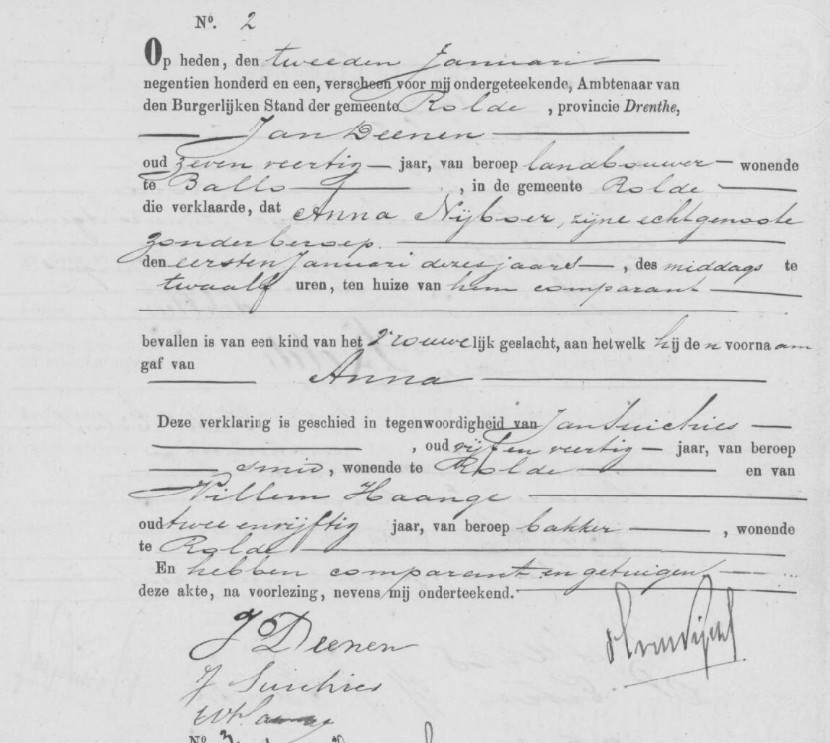 No. 2
Op heden, den tweeden Januari
negentien honderd en een, verscheen voor mij ondergeteekende, Ambtenaar van
den Burgerlijken Stand der gemeente Rolde, provincie Drenthe,
Jan Deenen
oud zeven veertig jaar, van beroep landbouwer wonende
te Ballo, in de gemeente Rolde
die verklaarde, dat Anna Nijboer, zijne echtgenoote
zonder beroep
den eersten Januari dezes jaars, des middags te
twaalf uren, ten huize van hem comparant
bevallen is van een kind van het vrouwelijk geslacht, aan hetwelk hij den voornaam
gaf van
Anna
Deze verklaring is geschied in tegenwoordigheid van Jan Suichies
, oud vijf en veertig jaar, van beroep
smid, wonende te Rolde en van
Willem Haange
oud twee en vijftig jaar, van beroep bakker, wonende
te Rolde
En hebben comparant en getuigen
deze akte, na voorlezing, nevens mij onderteekend.
J Deenen
J Suichies
No 3